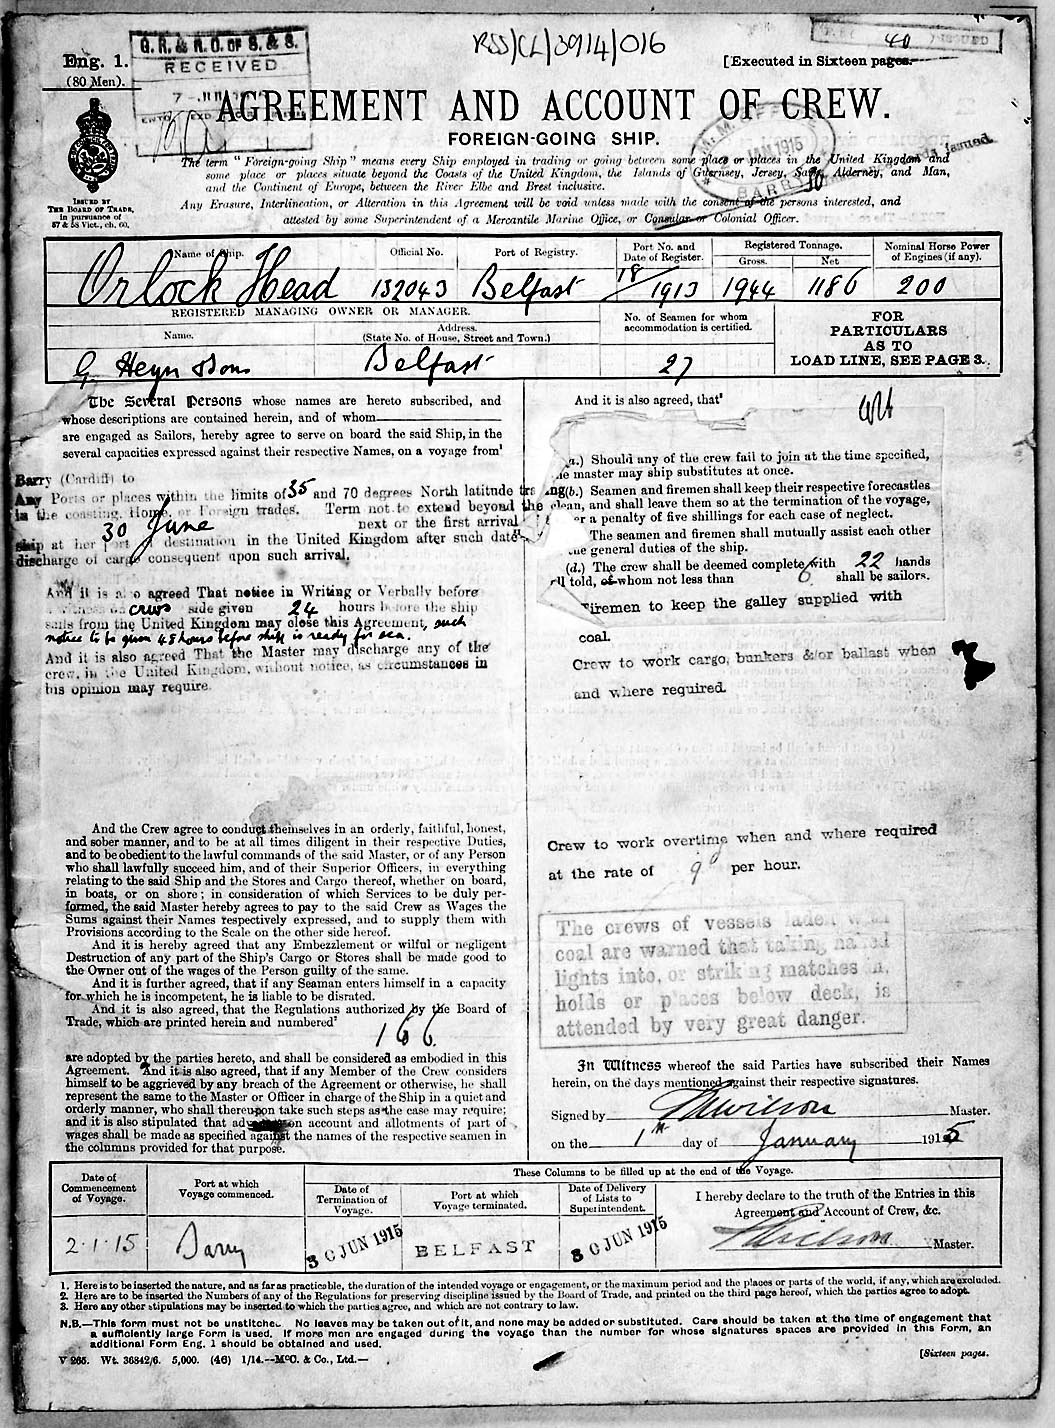 RSS/CL/3914/016
G. R. & R. O. OF S. & S.
RECEIVED
Eng. 1.
(80 Men).
40
ISSUED
[Executed in Sixteen pages.
AGREEMENT AND ACCOUNT OF CREW.
FOREIGN-GOING SHIP.
M. M. OFFICE
JAN 1915
BARRY
The term "Foreign-going Ship" means every Ship employed in trading or going between some place or places in the United Kingdom and
some place or places situate beyond the Coasts of the United Kingdom, the Islands of Guernsey, Jersey, Sark, Alderney, and Man,
and the Continent of Europe, between the River Elbe and Brest inclusive.
Any Erasure, Interlineation, or Alteration in this Agreement will be void unless made with the consent of the persons interested, and
attested by some Superintendent of a Mercantile Marine Office, or Consular or Colonial Officer.
10
issued.
ISSUED BY
THE BOARD OF TRADE,
in pursuance of
57 & 58 Vict., ch. 60.
Name of Ship.
Official No.
Port of Registry.
Port No. and
Date of Register.
Registered Tonnage.
Gross.
Net
Nominal Horse Power
of Engines (if any).
Orlock Head
132043
Belfast
18/1913
1944
1186
200
REGISTERED MANAGING OWNER OR MANAGER.
Name.
Address.
(State No. of House, Street and Town.)
No. of Seamen for whom
accommodation is certified.
FOR
PARTICULARS
AS TO
LOAD LINE, SEE PAGE 3.
G. Heyn & Sons
Belfast
27
The Several Persons whose names are hereto subscribed, and
whose descriptions are contained herein, and of whom
are engaged as Sailors, hereby agree to serve on board the said Ship, in the
several capacities expressed against their respective Names, on a voyage from¹
Barry (Cardiff) to
Any Ports or places within the limits of 35 and 70 degrees North latitude trading
in the coasting, Home, or Foreign trades. Term not to extend beyond the
30 June next or the first arrival
ship at her port destination in the United Kingdom after such date
discharge of cargo consequent upon such arrival.
And it is also agreed That notice in Writing or Verbally before
a witness on crews side given 24 hours before the ship
sails from the United Kingdom may close this Agreement, such
notice to be given 48 hours before ship is ready for sea.
And it is also agreed That the Master may discharge any of the
crew, in the United Kingdom, without notice, as circumstances in
his opinion may require.
And the Crew agree to conduct themselves in an orderly, faithful, honest,
and sober manner, and to be at all times diligent in their respective Duties,
and to be obedient to the lawful commands of the said Master, or of any Person
who shall lawfully succeed him, and of their Superior Officers, in everything
relating to the said Ship and the Stores and Cargo thereof, whether on board,
in boats, or on shore; in consideration of which Services to be duly per-
formed, the said Master hereby agrees to pay to the said Crew as Wages the
Sums against their Names respectively expressed, and to supply them with
Provisions according to the Scale on the other side hereof.
And it is hereby agreed that any Embezzlement or wilful or negligent
Destruction of any part of the Ship's Cargo or Stores shall be made good to
the Owner out of the wages of the Person guilty of the same.
And it is further agreed, that if any Seaman enters himself in a capacity
for which he is incompetent, he is liable to be disrated.
And it is also agreed, that the Regulations authorized by the Board of
Trade, which are printed herein and numbered²
166
are adopted by the parties hereto, and shall be considered as embodied in this
Agreement. And it is also agreed, that if any Member of the Crew considers
himself to be aggrieved by any breach of the Agreement or otherwise, he shall
represent the same to the Master or Officer in charge of the Ship in a quiet and
orderly manner, who shall thereupon take such steps as the case may require;
and it is also stipulated that advances on account and allotments of part of
wages shall be made as specified against the names of the respective seamen in
the columns provided for that purpose.
And it is also agreed, that³
(a.) Should any of the crew fail to join at the time specified,
the master may ship substitutes at once.
(b.) Seamen and firemen shall keep their respective forecastles
clean, and shall leave them so at the termination of the voyage,
or a penalty of five shillings for each case of neglect.
The seamen and firemen shall mutually assist each other
the general duties of the ship.
(d.) The crew shall be deemed complete with 22 hands
all told, of whom not less than 6 shall be sailors.
Firemen to keep the galley supplied with
coal.
Crew to work cargo, bunkers &/or ballast when
and where required.
Crew to work overtime when and where required
at the rate of 9d per hour.
The crews of vessels laden with
coal are warned that taking naked
lights into, or striking matches in,
holds or places below deck, is
attended by very great danger.
In Witness whereof the said Parties have subscribed their Names
herein, on the days mentioned against their respective signatures.
Signed by Wilson Master.
on the 1st day of January 1915
Date of
Commencement
of Voyage.
Port at which
Voyage commenced.
These Columns to be filled up at the end of the Voyage.
Date of
Termination of
Voyage.
Port at which
Voyage terminated.
Date of Delivery
of Lists to
Superintendent.
I hereby declare to the truth of the Entries in this
Agreement and Account of Crew, &c.
2.1.15
Barry
30 JUN 1915
BELFAST
30 JUN 1915
Wilson Master.
1. Here is to be inserted the nature, and as far as practicable, the duration of the intended voyage or engagement, or the maximum period and the places or parts of the world, if any, which are excluded.
2. Here are to be inserted the Numbers of any of the Regulations for preserving discipline issued by the Board of Trade, and printed on the third page hereof, which the parties agree to adopt.
3. Here any other stipulations may be inserted to which the parties agree, and which are not contrary to law.
N.B.—This form must not be unstitched. No leaves may be taken out of it, and none may be added or substituted. Care should be taken at the time of engagement that
a sufficiently large Form is used. If more men are engaged during the voyage than the number for whose signatures spaces are provided in this Form, an
additional Form Eng. 1 should be obtained and used.
V 265. Wt. 36842/6. 5,000. (46) 1/14.--McC. & Co., Ltd.—
[Sixteen pages.